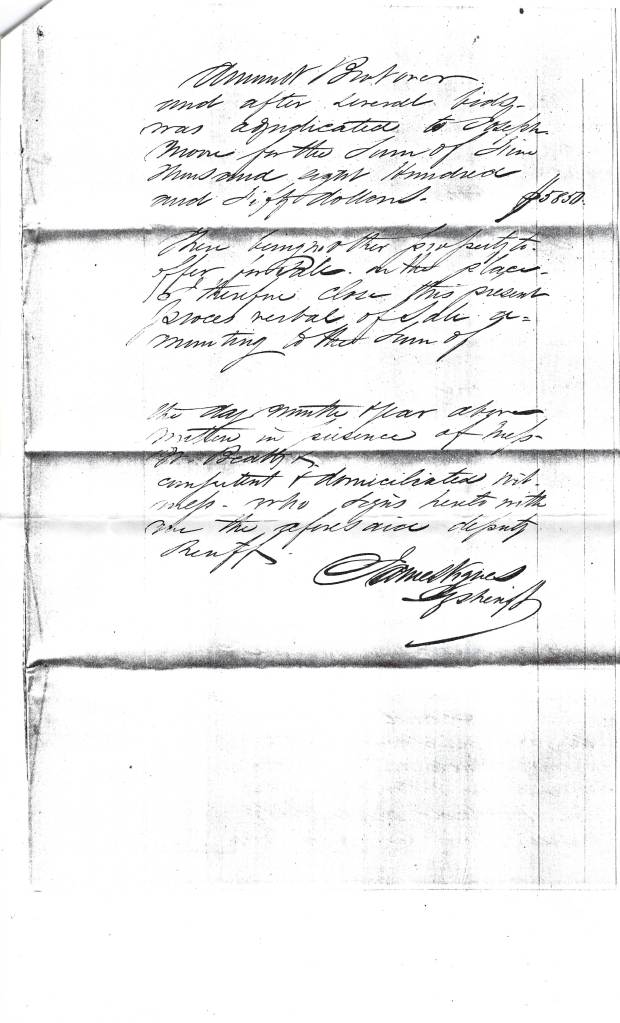 Amount Brot over
and after several bids-
was adjudicated to Joseph
Moore for the Sum of Five
thousand eight Hundred
and Fifty dollars. $5850.
There being no other property to
offer for Sale in the place-
I therefore close this present
proces verbal of Sale a=
mounting to the Sum of
the day month & year above
written in presence of
Beatty &
competent & domiciliated wit
ness- who signs hereto with
me the aforesaid deputy
Sheriff
James
Dy Sheriff